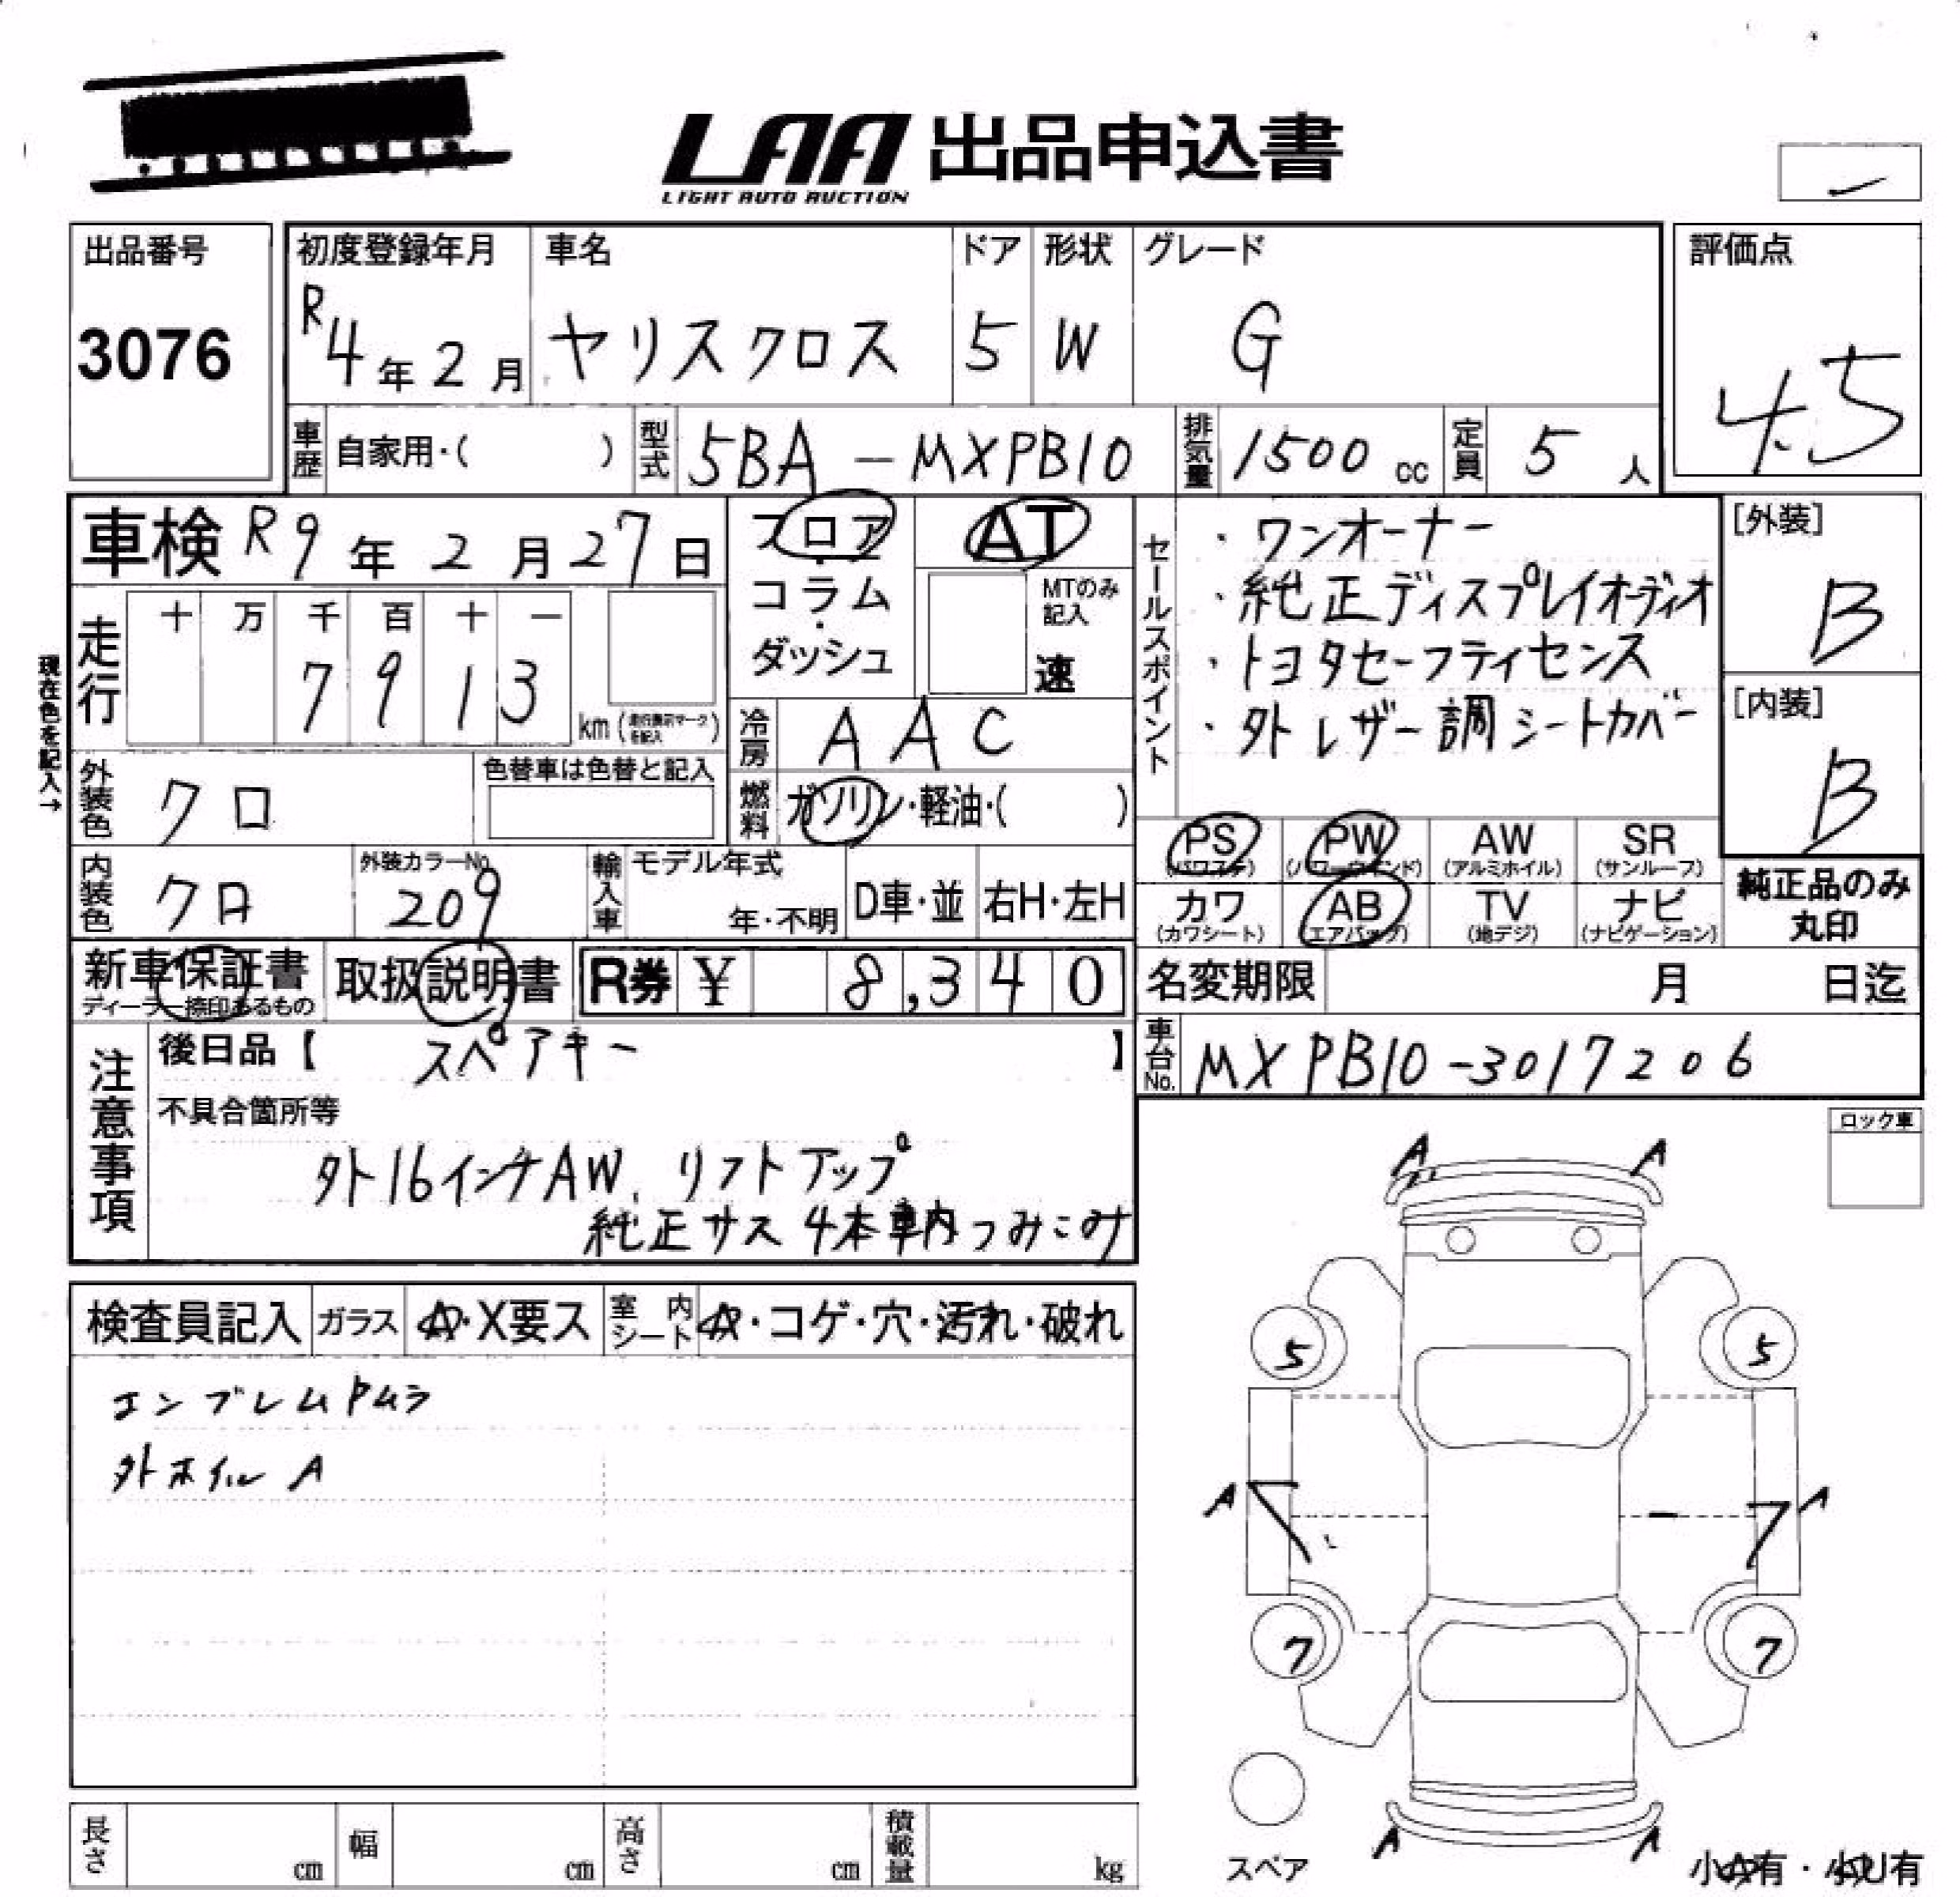 LAA 出品申込書
LIGHT AUTO AUCTION
出品番号
3076
初度登録年月
R4年2月
車名
ヤリスクロス
ドア
5
形状
W
グレード
G
評価点
4.5
車歴 自家用・( )
型式 5BA-MXPB10
排気量 1500 cc
定員 5 人
車検 R9年2月27日
フロア・コラム・ダッシュ
AT
MTのみ記入
速
現在色を記入→
走行
十 万 千 百 十 一
7 9 1 3
km (走行表示マークを記入)
冷房 AAC
燃料 ガソリン・軽油・( )
外装色 クロ
色替車は色替と記入
内装色 クロ
外装カラーNo.
209
輸入車 モデル年式
年・不明
D車・並
右H・左H
セールスポイント
・ワンオーナー
・純正ディスプレイオーディオ
・トヨタセーフティセンス
・外レザー調シートカバー
[外装]
B
[内装]
B
PS (パワステ)
PW (パワーウインド)
AW (アルミホイル)
SR (サンルーフ)
カワ (カワシート)
AB (エアバッグ)
TV (地デジ)
ナビ (ナビゲーション)
純正品のみ
丸印
新車保証書
ディーラー捺印あるもの
取扱説明書
R券 ¥ 8,340
名変期限 月 日迄
車台No. MXPB10-3017206
注意事項
後日品【 スペアキー 】
不具合箇所等
外16インチAW、リフトアップ
純正サス4本車内つみこみ
ロック車
検査員記入
ガラス A・X要ス
室内シート A・コゲ・穴・汚れ・破れ
エンブレムPムラ
外ホイルA
A A
5 5
A A
7 7
A A
スペア
小A有・小U有
長さ cm
幅 cm
高さ cm
積載量 kg